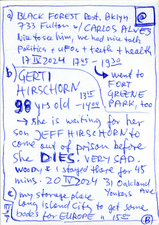 a) BLACK FOREST Dost, Bklyn
733 Fulton w/ CARLOS ALVES
Nice to see him, we had nice talk
Politics + UFOs + faith + health
17 IV 2024 1745 - 1930
b) GERTI
HIRSCHORN
98 years old
→ went to
FORT
GREENE
PARK, too
→ she is waiting for her
son JEFF HIRSCHORN to
come out of prison before
she DIES. VERY SAD.
WOODY + I stayed there for 45
mins. 20 IV 2024 31 Oakland
Yonkers Ave
c) my storage place
Long Island City to get some
books for EUROPE 1500